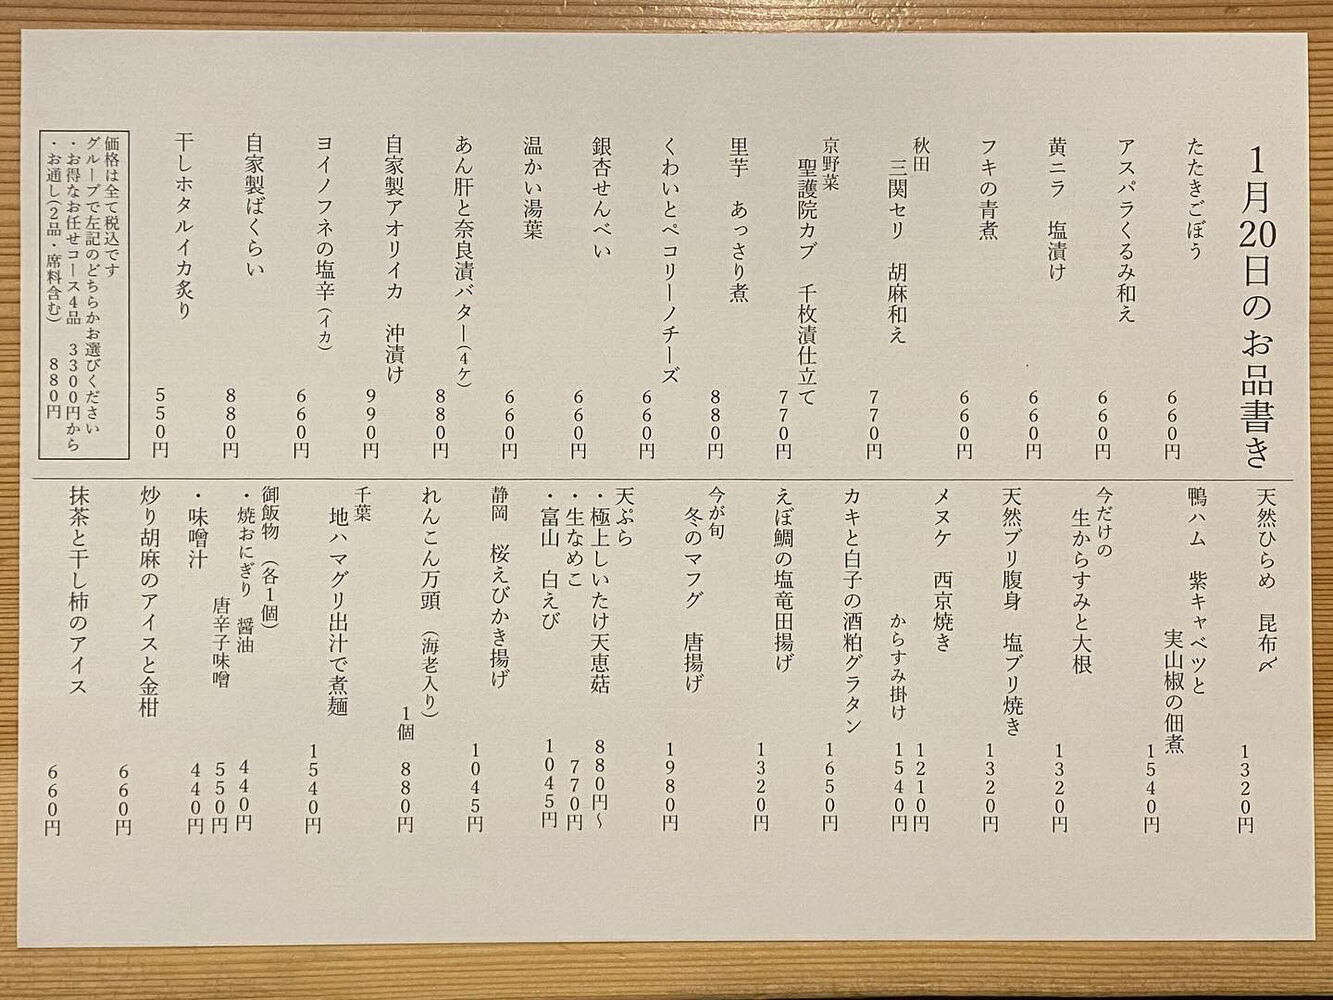 1月20日のお品書き
たたきごぼう
660円
アスパラくるみ和え
660円
黄ニラ 塩漬け
660円
フキの青煮
660円
秋田
三関セリ 胡麻和え
770円
京野菜
聖護院カブ 千枚漬仕立て
770円
里芋 あっさり煮
880円
くわいとペコリーノチーズ
660円
銀杏せんべい
660円
温かい湯葉
660円
あん肝と奈良漬バター(4ケ)
880円
自家製アオリイカ 沖漬け
990円
ヨイノフネの塩辛(イカ)
660円
自家製ばくらい
880円
干しホタルイカ炙り
550円
価格は全て税込です
グループで左記のどちらかお選びください
・お得なお任せコース4品 3300円から
・お通し(2品・席料含む) 880円
天然ひらめ 昆布〆
1320円
鴨ハム 紫キャベツと
実山椒の佃煮
1540円
今だけの
生からすみと大根
1320円
天然ブリ腹身 塩ブリ焼き
1320円
メヌケ 西京焼き
1210円
からすみ掛け
1540円
カキと白子の酒粕グラタン
1650円
えぼ鯛の塩竜田揚げ
1320円
今が旬
冬のマフグ 唐揚げ
1980円
天ぷら
・極上しいたけ天恵菇 880円~
・生なめこ 770円
・富山 白えび 1045円
静岡 桜えびかき揚げ
1045円
れんこん万頭 (海老入り)
1個 880円
千葉
地ハマグリ出汁で煮麺
1540円
御飯物 (各1個)
・焼おにぎり 醤油 440円
唐辛子味噌 550円
・味噌汁 440円
炒り胡麻のアイスと金柑
660円
抹茶と干し柿のアイス
660円